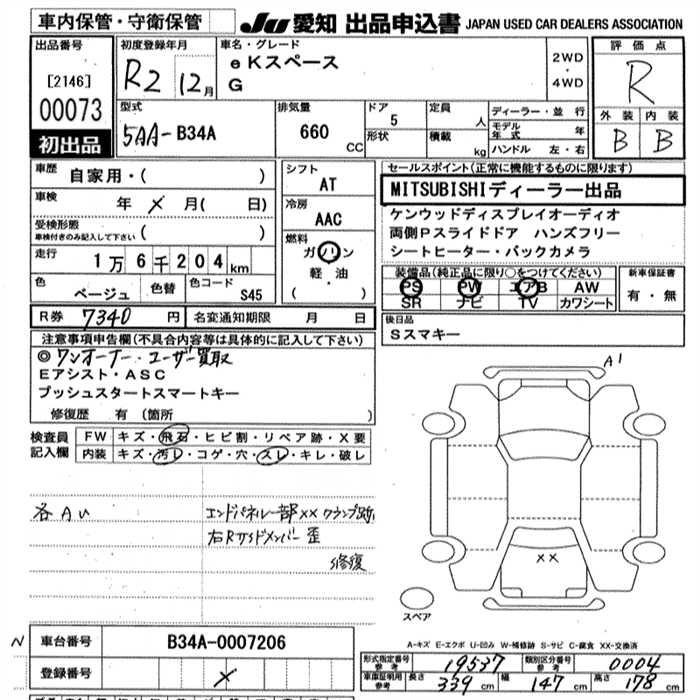 車内保管・守衛保管
JU 愛知 出品申込書 JAPAN USED CAR DEALERS ASSOCIATION
出品番号
[2146]
00073
初出品
初度登録年月
R2 12月
車名・グレード
eKスペース
G
2WD
・
4WD
評価点
R
外装 内装
B B
型式
5AA-B34A
排気量
660 CC
ドア
5
形状
定員
人
積載
kg
ディーラー・並行
モデル年式 年
ハンドル 左・右
車歴
自家用・( )
車検
年 × 月( 日)
受検形態
車検付きのみ記入して下さい ( )
走行
1万6千204km
色
ベージュ
色替
色コード
S45
シフト
AT
冷房
AAC
燃料
ガソリン
軽・油
( )
セールスポイント(正常に機能するものに限ります)
MITSUBISHIディーラー出品
ケンウッドディスプレイオーディオ
両側Pスライドドア ハンズフリー
シートヒーター・バックカメラ
装備品(純正品に限り○をつけてください)
PS PW エアB AW
SR ナビ TV カワシート
新車保証書
有・無
R券 7340 円
名変通知期限 月 日
後日品
Sスマキー
注意事項申告欄(不具合内容等は具体的に記入して下さい)
◎ワンオーナー・ユーザー買取
Eアシスト・ASC
プッシュスタートスマートキー
修復歴 有(箇所 )
検査員記入欄
FW キズ・飛石・ヒビ割・リペア跡・X要
内装 キズ・汚レ・コゲ・穴・スレ・キレ・破レ
各AU
エンドパネル一部××クランプ跡
右Rサイドメンバー歪
修復
A1
××
スペア
A-キズ E-エクボ U-凹み W-補修跡 S-サビ C-腐食 XX-交換済
N 車台番号 B34A-0007206
登録番号 ×
形式指定番号 参考 19537
類別区分番号 参考 0004
車庫証明用 参考 長さ 339 cm 幅 147 cm 高さ 178 cm